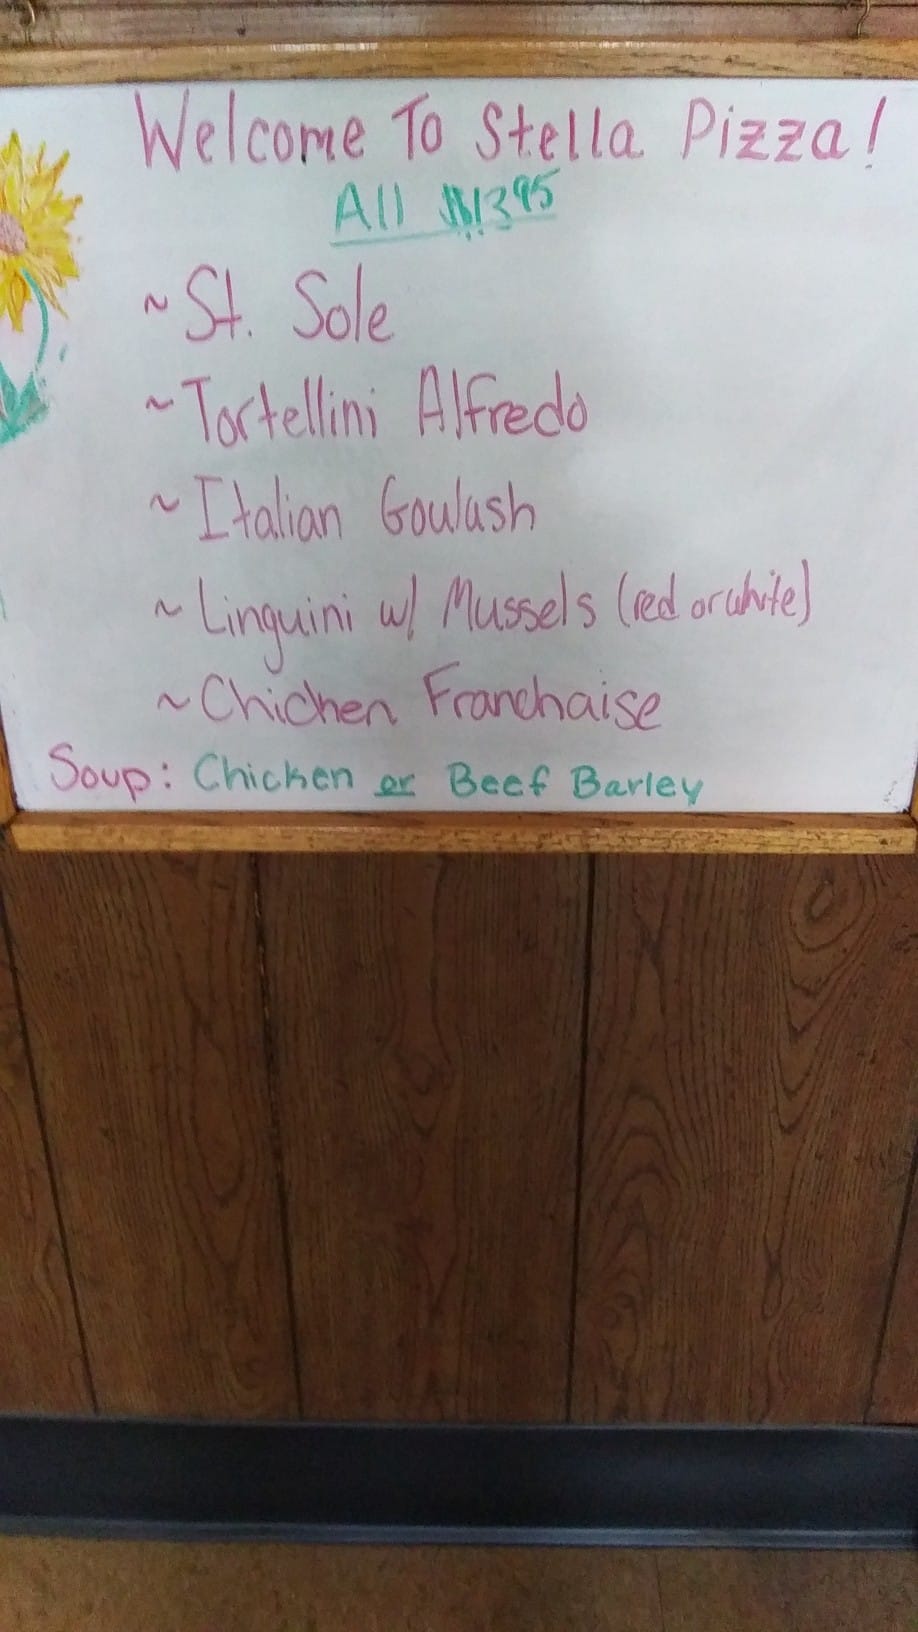 Welcome To Stella Pizza!
All $13.95
~St. Sole
~Tortellini Alfredo
~Italian Goulash
~Linguini w/ Mussels (red or white)
~Chicken Franchaise
Soup: Chicken or Beef Barley